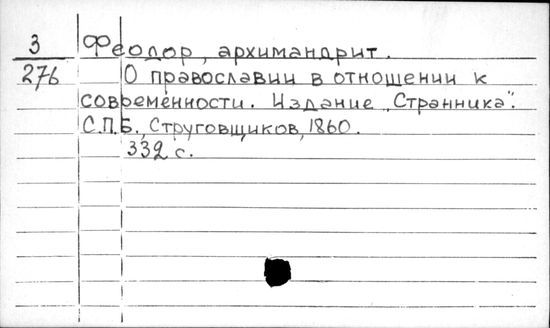 3 Феодор, архимандрит.
276 О православии в отношении к
современности. Издание „Странника".
С.П.Б., Струговщиков, 1860.
332 с.